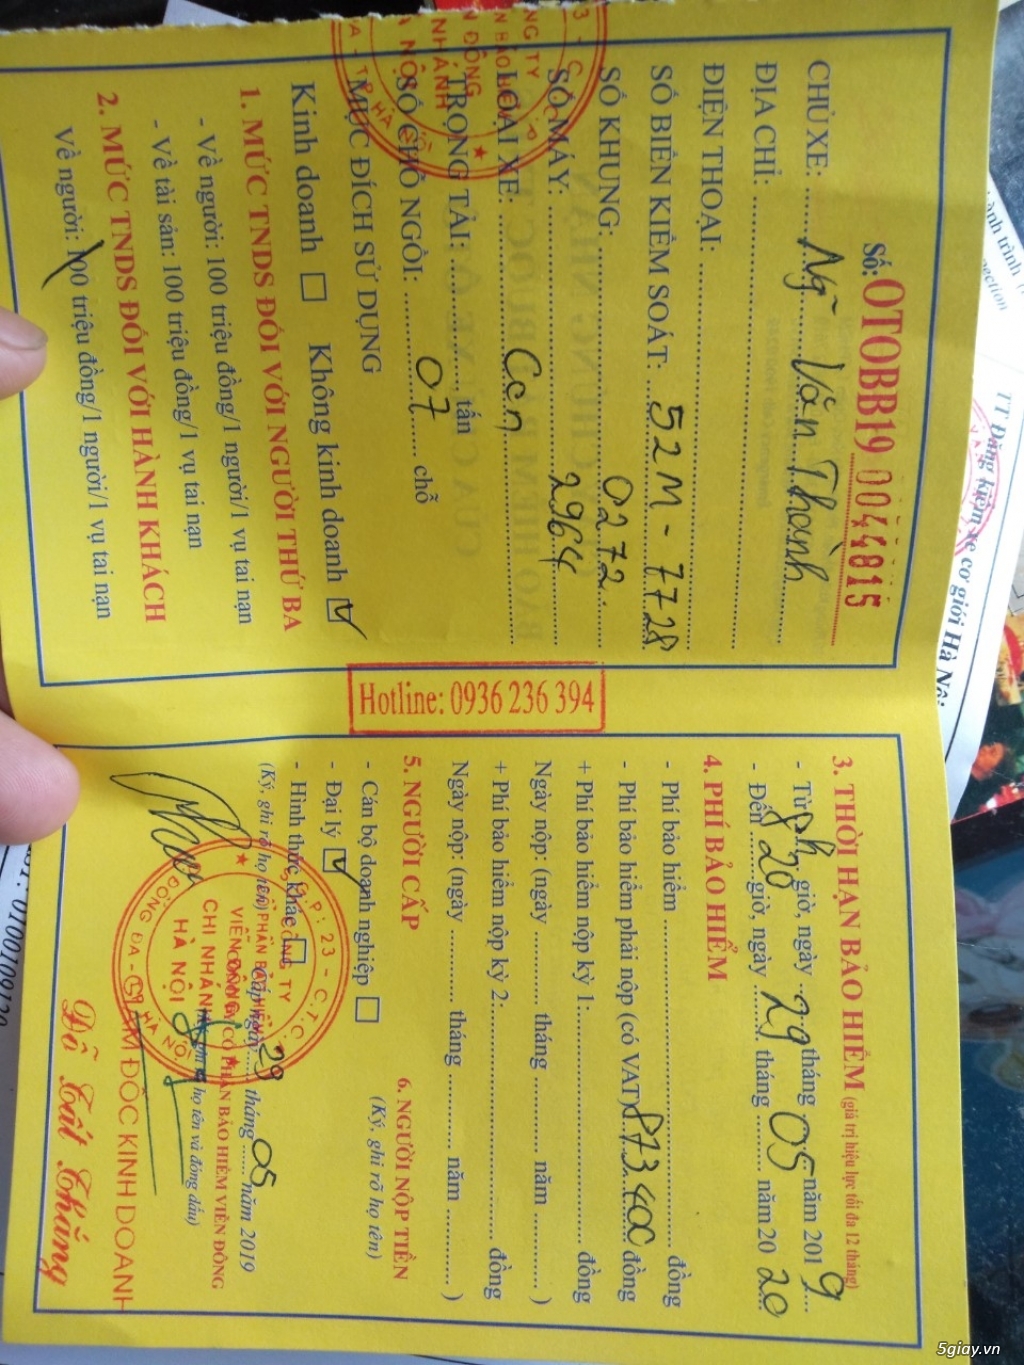 Số: OTOBB19 0044815
CHỦ XE: Ng~ Văn Thành
ĐỊA CHỈ:
ĐIỆN THOẠI:
SỐ BIỂN KIỂM SOÁT: 52M - 7728
SỐ KHUNG: 0272.
SỐ MÁY: 2964
LOẠI XE: Con
TRỌNG TẢI: tấn
SỐ CHỖ NGỒI: 07 chỗ
MỤC ĐÍCH SỬ DỤNG
Kinh doanh Không kinh doanh
1. MỨC TNDS ĐỐI VỚI NGƯỜI THỨ BA
- Về người: 100 triệu đồng/1 người/1 vụ tai nạn
- Về tài sản: 100 triệu đồng/1 vụ tai nạn
2. MỨC TNDS ĐỐI VỚI HÀNH KHÁCH
Về người: 100 triệu đồng/1 người/1 vụ tai nạn
Hotline: 0936 236 394
3. THỜI HẠN BẢO HIỂM (giá trị hiệu lực tối đa 12 tháng)
- Từ 8h giờ, ngày 29 tháng 05 năm 2019
- Đến 820 giờ, ngày 29 tháng năm 20 20
4. PHÍ BẢO HIỂM
- Phí bảo hiểm đồng
- Phí bảo hiểm phải nộp (có VAT) 873.400 đồng
+ Phí bảo hiểm nộp kỳ 1: đồng
Ngày nộp: (ngày tháng năm )
+ Phí bảo hiểm nộp kỳ 2: đồng
Ngày nộp: (ngày tháng năm )
5. NGƯỜI CẤP
6. NGƯỜI NỘP TIỀN
- Cán bộ doanh nghiệp
(Ký, ghi rõ họ tên)
- Đại lý
- Hình thức khác
(Ký, ghi rõ họ tên)
Cấp ngày 29 tháng 05 năm 2019
CÔNG TY CỔ PHẦN BẢO HIỂM VIỄN ĐÔNG
họ tên và đóng dấu)
CÔNG TY
CỔ PHẦN BẢO HIỂM
VIỄN ĐÔNG
CHI NHÁNH
HÀ NỘI
ĐỐNG ĐA - TP HÀ NỘI
GIÁM ĐỐC KINH DOANH
Đỗ Tất Thắng
TT Đăng kiểm xe cơ giới Hà Nội
5giay.vn